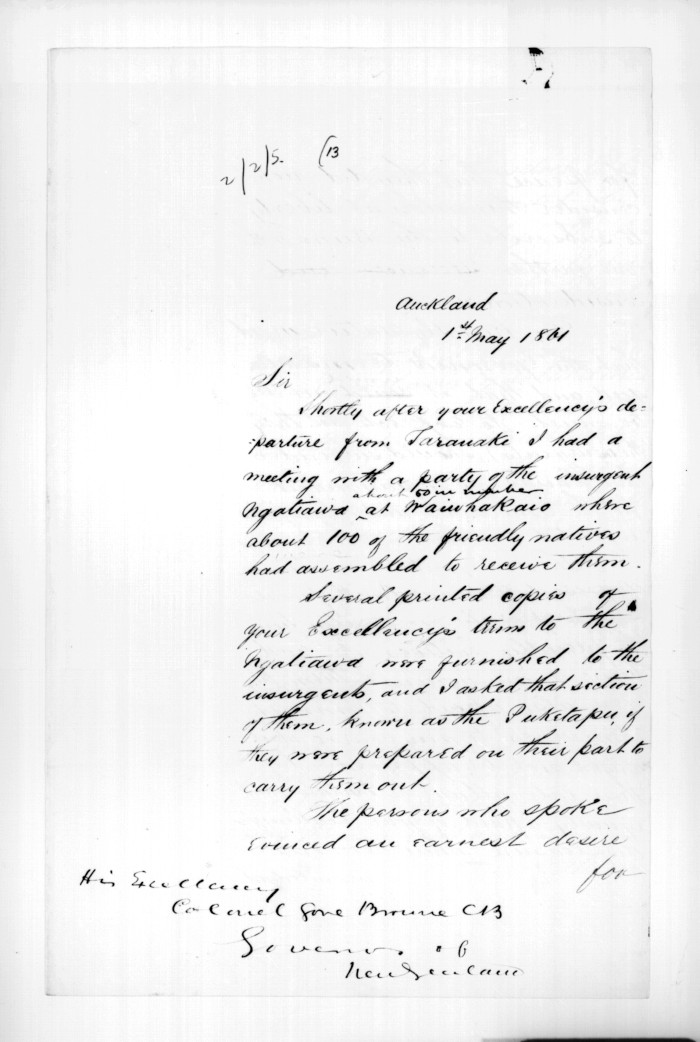 2/2/5. (13
Auckland
1st May 1861
Sir
Shortly after your Excellency's de=
=parture from Taranaki I had a
meeting with a party of the insurgent
about 50 in number
Ngatiawa ^ at Waiwhakaio where
about 100 of the friendly natives
had assembled to receive them.
Several printed copies of
your Excellency's terms to the
Ngatiawa were furnished to the
insurgents, and I asked that section
of them, known as the Puketapu, if
they were prepared on their part to
carry them out.
The persons who spoke
evinced an earnest desire
for
His Excellency
Colonel Gore Browne CB
Governor of
New Zealand